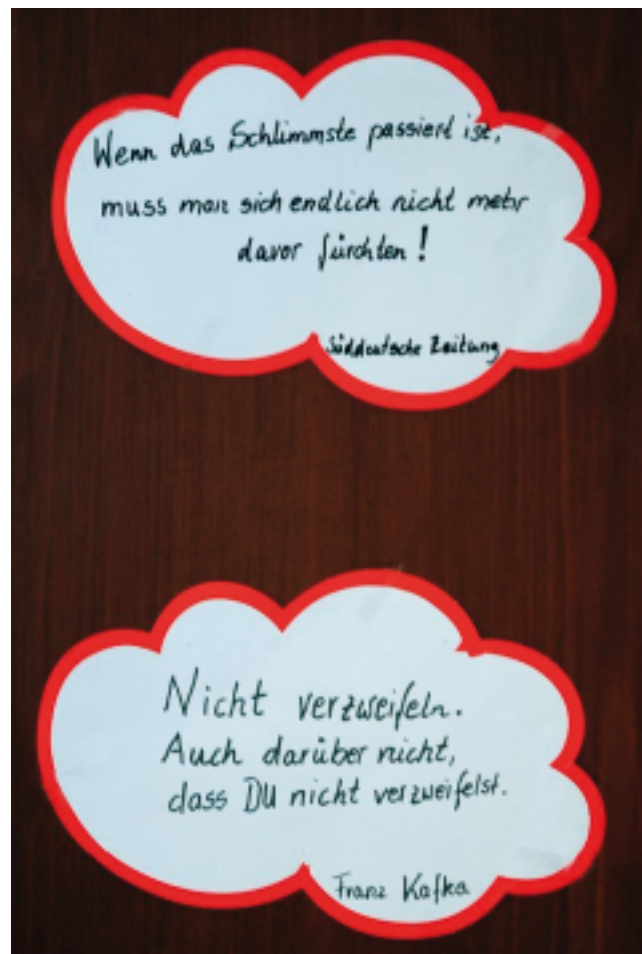 Wenn das Schlimmste passiert ist,
muss man sich endlich nicht mehr
davor fürchten!
Süddeutsche Zeitung
Nicht verzweifeln.
Auch darüber nicht,
dass DU nicht verzweifelst.
Franz Kafka